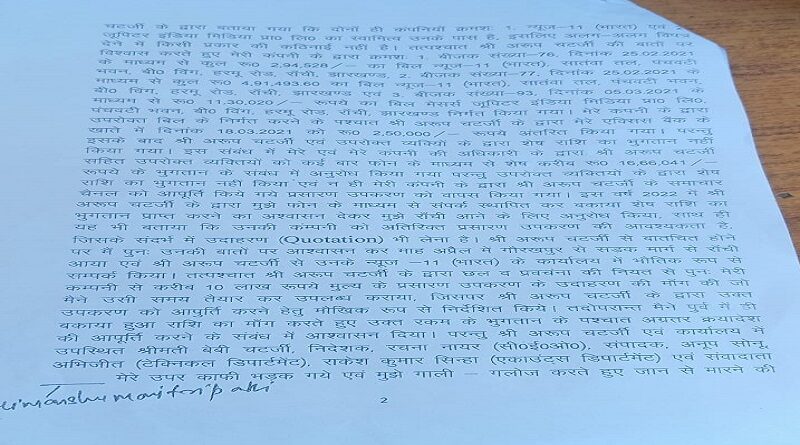 चटर्जी के द्वारा बताया गया कि दोनों ही कंपनियाँ क्रमशः 1. न्यूज–11 (भारत) एवं
जूपिटर इंडिया मिडिया प्रा० लि० का स्वामित्व उनके पास है, इसलिए अलग–अलग विपत्र
देने में किसी प्रकार की कठिनाई नहीं है। तत्पश्चात श्री अरूप चटर्जी की बातों पर
विश्वास करते हुए मेरी कंपनी के द्वारा क्रमशः 1. बीजक संख्या–76, दिनांक 25.02.2021
के माध्यम से कुल रू० 2,94,528/– का बिल न्यूज–11 (भारत), सातंवा तल, पंचवटी
भवन, बी० विंग, हरमू रोड, राँची, झारखण्ड, 2. बीजक संख्या–77, दिनांक 25.02.2021 के
माध्यम से कुल रू० 4,91,493.60 का बिल न्यूज–11 (भारत), सातंवा तल, पंचवटी भवन,
बी० विंग, हरमू रोड, राँची, झारखण्ड एवं 3. बीजक संख्या–93, दिनांक 05.03.2021 के
माध्यम से रू० 11,30,020/– रूपये का बिल मेसर्स जूपिटर इंडिया मिडिया प्रा० लि०,
पंचवटी भवन, बी० विंग, हरमू रोड, राँची, झारखण्ड निर्गत किया गया। मेरे कंपनी के द्वारा
उपरोक्त बिल के निर्गत करने के पश्चात श्री अरूप चटर्जी के द्वारा मेरे एक्सिस बैंक के
खाते में दिनांक 18.03.2021 को रू० 2,50,000/– रूपये अंतरित किया गया। परन्तु
इसके बाद श्री अरूप चटर्जी एवं उपरोक्त व्यक्तियों के द्वारा शेष राशि का भुगतान नहीं
किया गया। इस संबंध में मेरे एवं मेरे कंपनी की अधिकारी के द्वारा श्री अरूप चटर्जी
सहित उपरोक्त व्यक्तियों को कई बार फोन के माध्यम से शेष करीब रू० 16,66,041/–
रूपये के भुगतान के संबंध में अनुरोध किया गया परन्तु उपरोक्त व्यक्तियों के द्वारा शेष
राशि का भुगतान नहीं किया एवं न ही मेरी कंपनी के द्वारा श्री अरूप चटर्जी के समाचार
चैनल को आपूर्ति किये गये प्रसारण उपकरण को वापस किया गया। इस वर्ष 2022 में श्री
अरूप चटर्जी के द्वारा मुझे फोन के माध्यम से संपर्क स्थापित कर बकाया शेष राशि का
भुगतान प्राप्त करने का अश्वासन देकर मुझे राँची आने के लिए अनुरोध किया, साथ ही
यह भी बताया कि उनकी कम्पनी को अतिरिक्त प्रसारण उपकरण की आवश्यकता है,
जिसके संदर्भ में उदाहरण (Quotation) भी लेना है। श्री अरूप चटर्जी से बातचित होने
पर में पुनः उनकी बातों पर आश्वासन कर माह अप्रैल में गोरखपुर से सड़क मार्ग से राँची
आया एवं श्री अरूप चटर्जी से उनके न्यूज – 11 (भारत) के कार्यालय में भौतिक रूप से
सम्पर्क किया। तत्पश्चात श्री अरूप चटर्जी के द्वारा छल व प्रवचंना की नियत से पुनः मेरी
कम्पनी से करीब 10 लाख रूपये मुल्य के प्रसारण उपकरण के उदाहरण की माँग की जो
मैने उसी समय तैयार कर उपलब्ध कराया, जिसपर श्री अरूप चटर्जी के द्वारा उक्त
उपकरण को आपुर्ति करने हेतु मौखिक रूप से निर्देशित किये। तदोपरान्त मैने पुर्व में ही
बकाया हुआ राशि का माँग करते हुए उक्त रकम के भुगतान के पश्चात अग्रत्तर क्रयादेश
की आपूर्ति करने के संबंध में आश्वासन दिया। परन्तु श्री अरूप चटर्जी एवं कार्यालय में
उपस्थित श्रीमती बेबी चटर्जी, निदेशक, रचना नायर (सी०ई०ओ०), संपादक, अनूप सोनू,
अभिजीत (टेक्निकल डिपार्टमेंट), राकेश कुमार सिन्हा (एकाउंट्स डिपार्टमेंट) एवं संवादाता
मेरे उपर काफी भड़क गये एवं मुझे गाली – गलौज करते हुए जान से मारने की
2